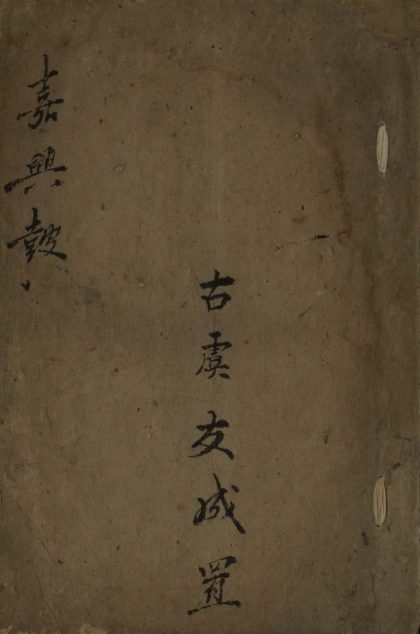 古虞友成置
嘉興皷